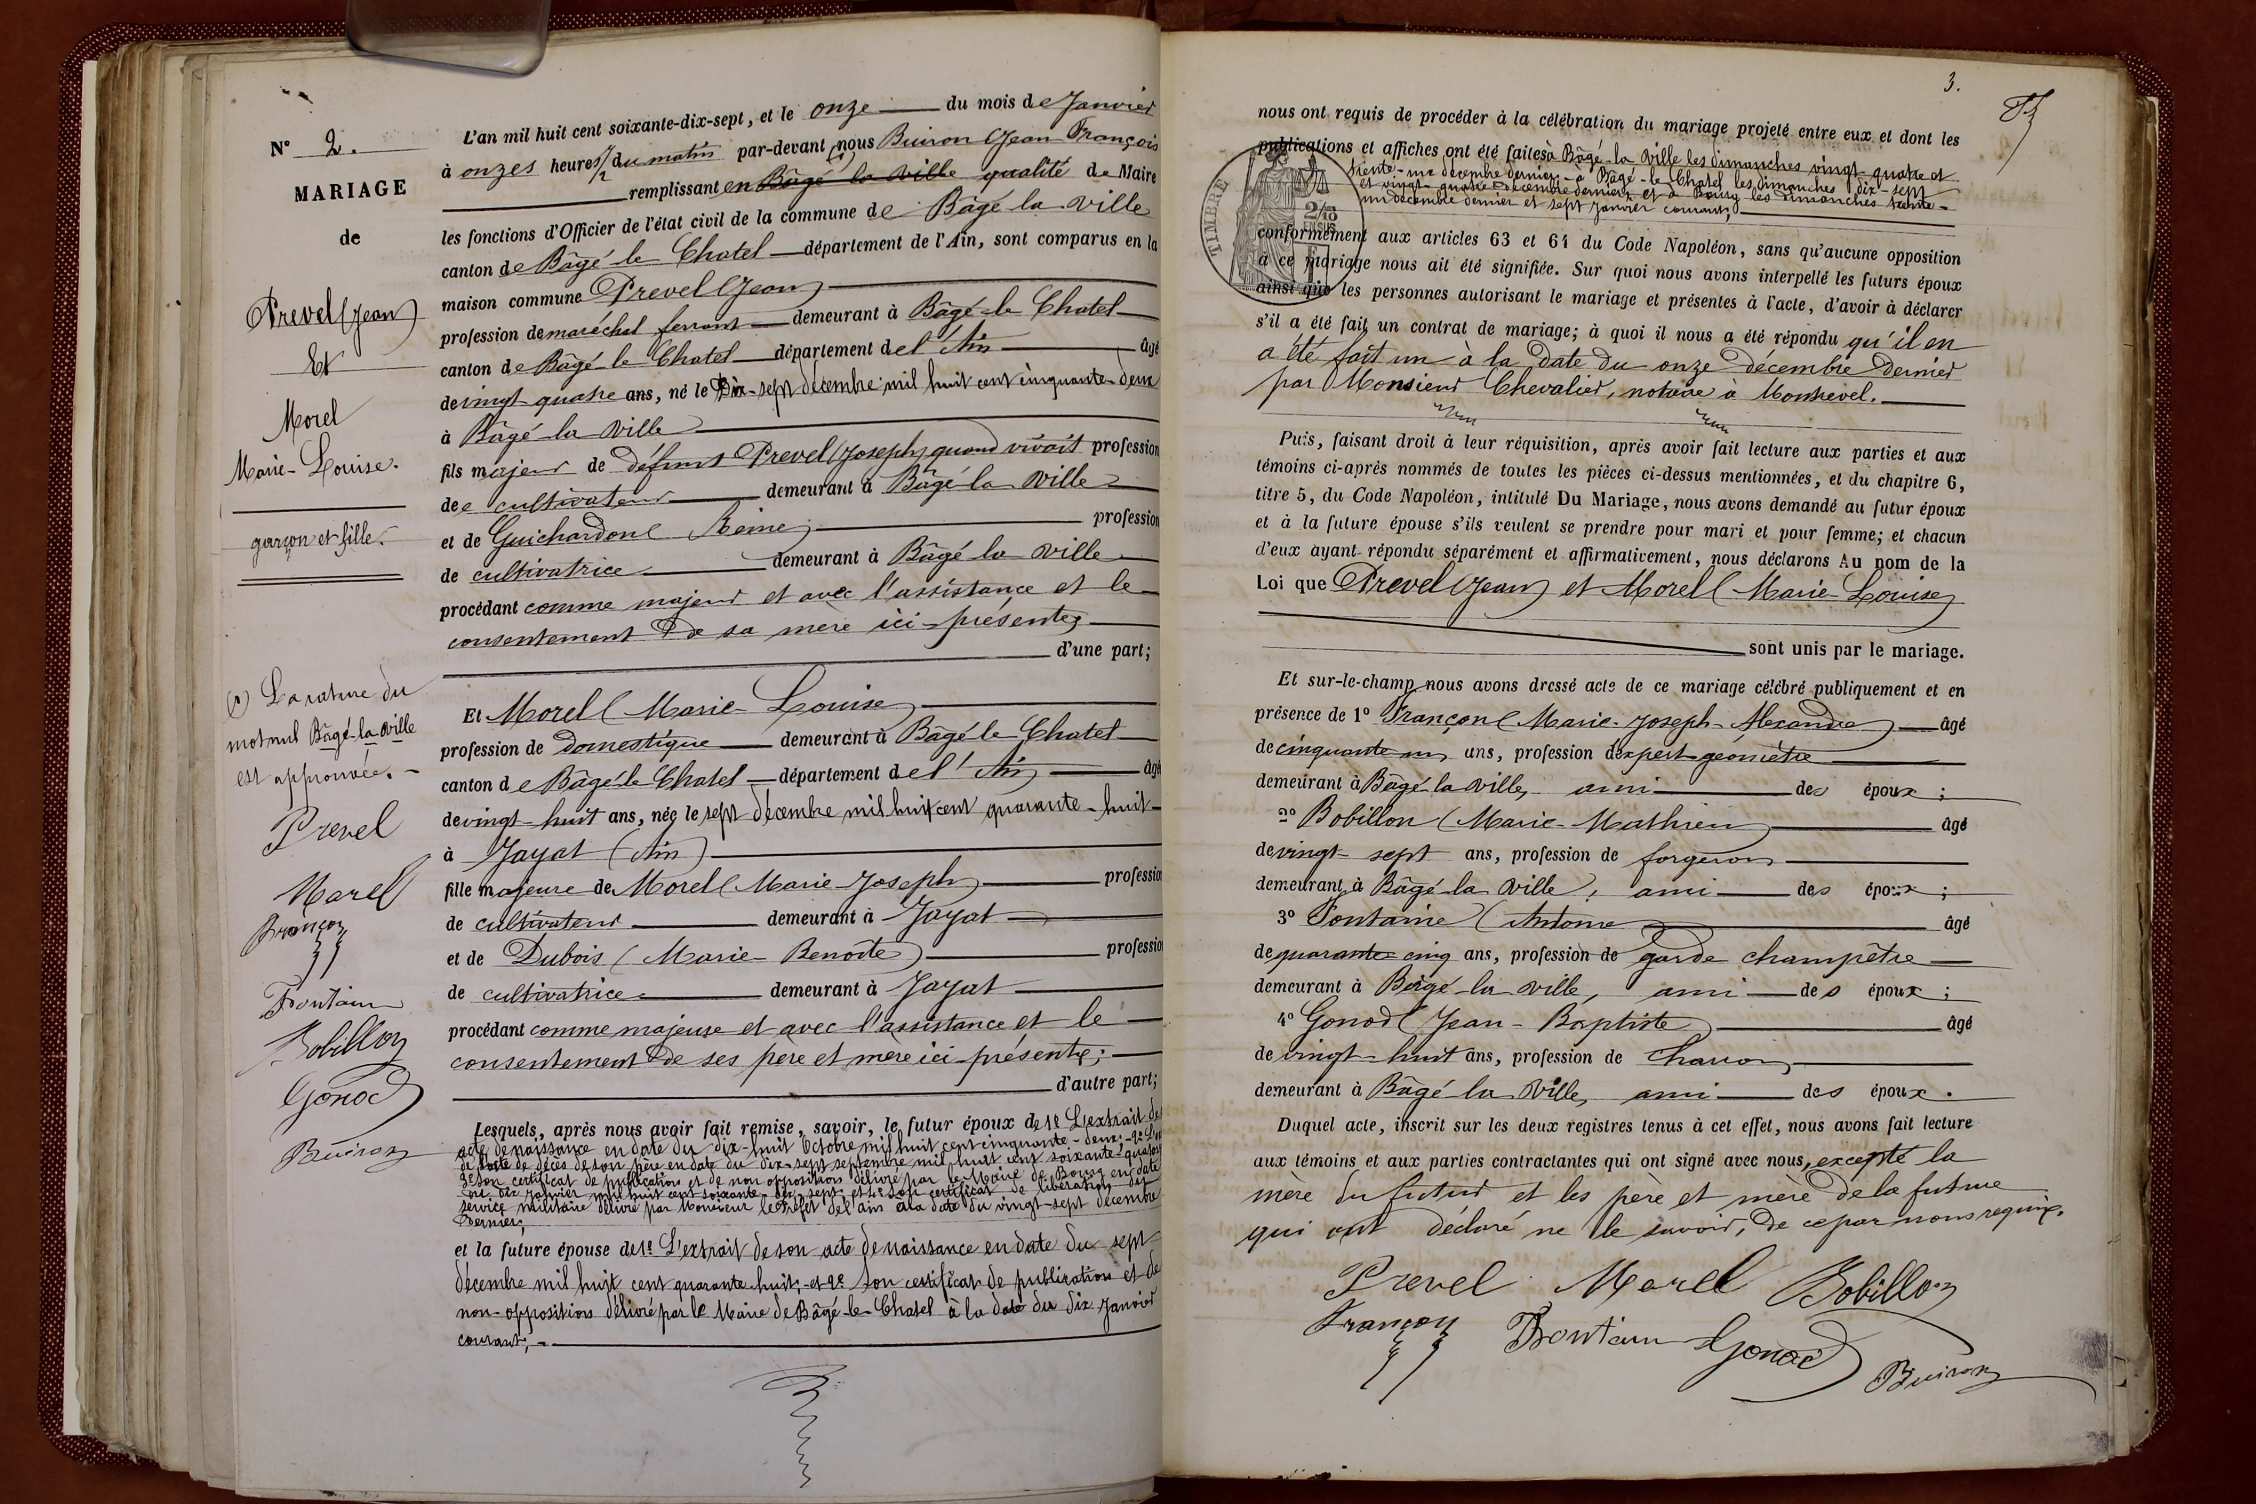 N° 2.
MARIAGE
de
Prevel (Jean)
Et
Morel
Marie-Louise.
garçon et fille.
(1) La rature du
mot nul Bâgé-la-Ville
est approuvée.
Prevel
Marel
Françon
Fontain
Bobillon
Gonod
Buiron
L'an mil huit cent soixante-dix-sept, et le onze du mois de Janvier
à onzes heures 1/2 du matin par-devant (1) nous Buiron (Jean François
remplissant en Bâgé la Ville qualité de Maire
les fonctions d'Officier de l'état civil de la commune de Bâgé la Ville
canton de Bâgé le Chatel département de l'Ain, sont comparus en la
maison commune Prevel (Jean)
profession de maréchal ferrant demeurant à Bâgé-le Chatel
canton de Bâgé-le Chatel département de l'Ain âgé
de vingt quatre ans, né le Dix-sept décembre mil huit cent cinquante-deux
à Bâgé-la Ville
fils majeur de défunt Prevel (Joseph) quand vivait profession
de cultivateur demeurant à Bâgé la Ville
et de Guichardon (Reine) profession
de cultivatrice demeurant à Bâgé la Ville
procédant comme majeur et avec l'assistance et le
consentement de sa mère ici-présente,
d'une part;
Et Morel (Marie-Louise)
profession de domestique demeurant à Bâgé le Chatel
canton de Bâgé-le Chatel département de l'Ain âgé
de vingt-huit ans, née le sept décembre mil huit cent quarante-huit
à Jayat (Ain)
fille majeure de Morel (Marie-Joseph) profession
de cultivateur demeurant à Jayat
et de Dubois (Marie-Benoite) profession
de cultivatrice demeurant à Jayat
procédant comme majeure et avec l'assistance et le
consentement de ses père et mère ici-présents;
d'autre part;
Lesquels, après nous avoir fait remise, savoir, le futur époux de 1° L'extrait de
acte de naissance en date du dix-huit Octobre mil huit cent cinquante-deux; 2°
de l'acte de décès de son père en date du dix-sept septembre mil huit cent soixante-quatorze
3° son certificat de publication et de non opposition délivré par le Maire de Bourg en date
du dix janvier mil huit cent soixante-dix-sept et 4° son certificat de libération du
service militaire délivré par Monsieur le Préfet de l'ain à la date du vingt-sept décembre
dernier;
et la future épouse de 1° L'extrait de son acte de naissance en date du sept
décembre mil huit cent quarante huit; et 2° son certificat de publication et de
non-opposition délivré par le Maire de Bâgé-le-Chatel à la date du dix Janvier
courant;
3.
nous ont requis de procéder à la célébration du mariage projeté entre eux et dont les
publications et affiches ont été faites à Bâgé-la Ville les dimanches vingt-quatre et
trente-un décembre dernier - à Bâgé-le Chatel les dimanches dix-sept
et vingt-quatre décembre dernier et à Bourg les dimanches trente-
un décembre dernier et sept janvier courant;
TIMBRE
conformément aux articles 63 et 64 du Code Napoléon, sans qu'aucune opposition
à ce mariage nous ait été signifiée. Sur quoi nous avons interpellé les futurs époux
ainsi que les personnes autorisant le mariage et présentes à l'acte, d'avoir à déclarer
s'il a été fait un contrat de mariage; à quoi il nous a été répondu qu'il en
a été fait un à la date du onze décembre dernier
par Monsieur Chevalier, notaire à Montrevel.
Puis, faisant droit à leur réquisition, après avoir fait lecture aux parties et aux
témoins ci-après nommés de toutes les pièces ci-dessus mentionnées, et du chapitre 6,
titre 5, du Code Napoléon, intitulé Du Mariage, nous avons demandé au futur époux
et à la future épouse s'ils veulent se prendre pour mari et pour femme; et chacun
d'eux ayant répondu séparément et affirmativement, nous déclarons Au nom de la
Loi que Prevel (Jean) et Morel (Marie-Louise)
sont unis par le mariage.
Et sur-le-champ nous avons dressé acte de ce mariage célébré publiquement et en
présence de 1° Françon (Marie-Joseph-Alexandre) âgé
de cinquante un ans, profession d'expert géomètre
demeurant à Bâgé-la Ville, ami des époux;
2° Bobillon (Marie-Mathieu) âgé
de vingt-sept ans, profession de forgeron
demeurant à Bâgé la Ville, ami des époux;
3° Fontaine (Antoine) âgé
de quarante-cinq ans, profession de garde champêtre
demeurant à Bâgé-la Ville, ami des époux;
4° Gonod (Jean-Baptiste) âgé
de vingt-huit ans, profession de charron
demeurant à Bâgé la Ville, ami des époux.
Duquel acte, inscrit sur les deux registres tenus à cet effet, nous avons fait lecture
aux témoins et aux parties contractantes qui ont signé avec nous, excepté la
mère du futur et les père et mère de la future
qui ont déclaré ne le savoir, de ce par nous requis.
Prevel Marel Bobillon
Françon Fontain Gonod
Buiron